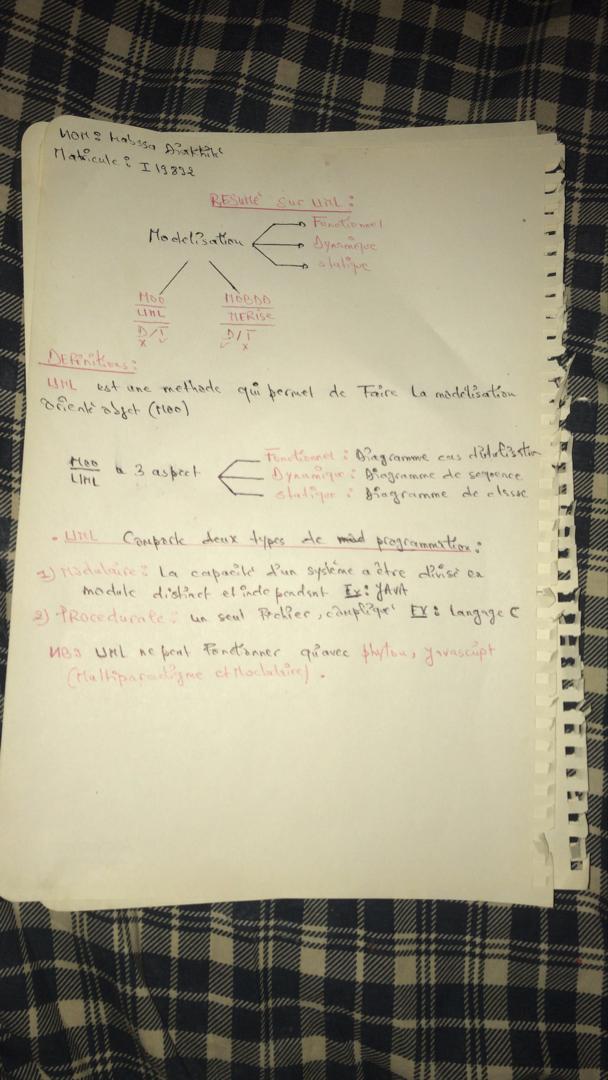 NOM: Habssa Diakhité
Matricule: I19832
RESUMÉ sur UML:
Fonctionnel
Modelisation
Dynamique
statique
MOO MOBDD
UML MERISE
D/T D/T
x ✓ ✓ x
DEFinitions:
UML est une methode qui permet de Faire la modélisation
orienté objet (MOO)
Fonctionnel: Diagramme cas d'utilisation
MOO
UML a 3 aspect
Dynamique: Diagramme de seqence
statique: Diagramme de classe
. UML Comporte deux types de programmation:
1) Modulaire: la capacité d'un système a être divisé en
module distinct et independant Ex: JAVA
2) PRocedurale: un seul Fichier, compliqué EX: langage C
NB: UML ne peut Fonctionner qu'avec phyton, javascript
(Multiparadigme et Modulaire).